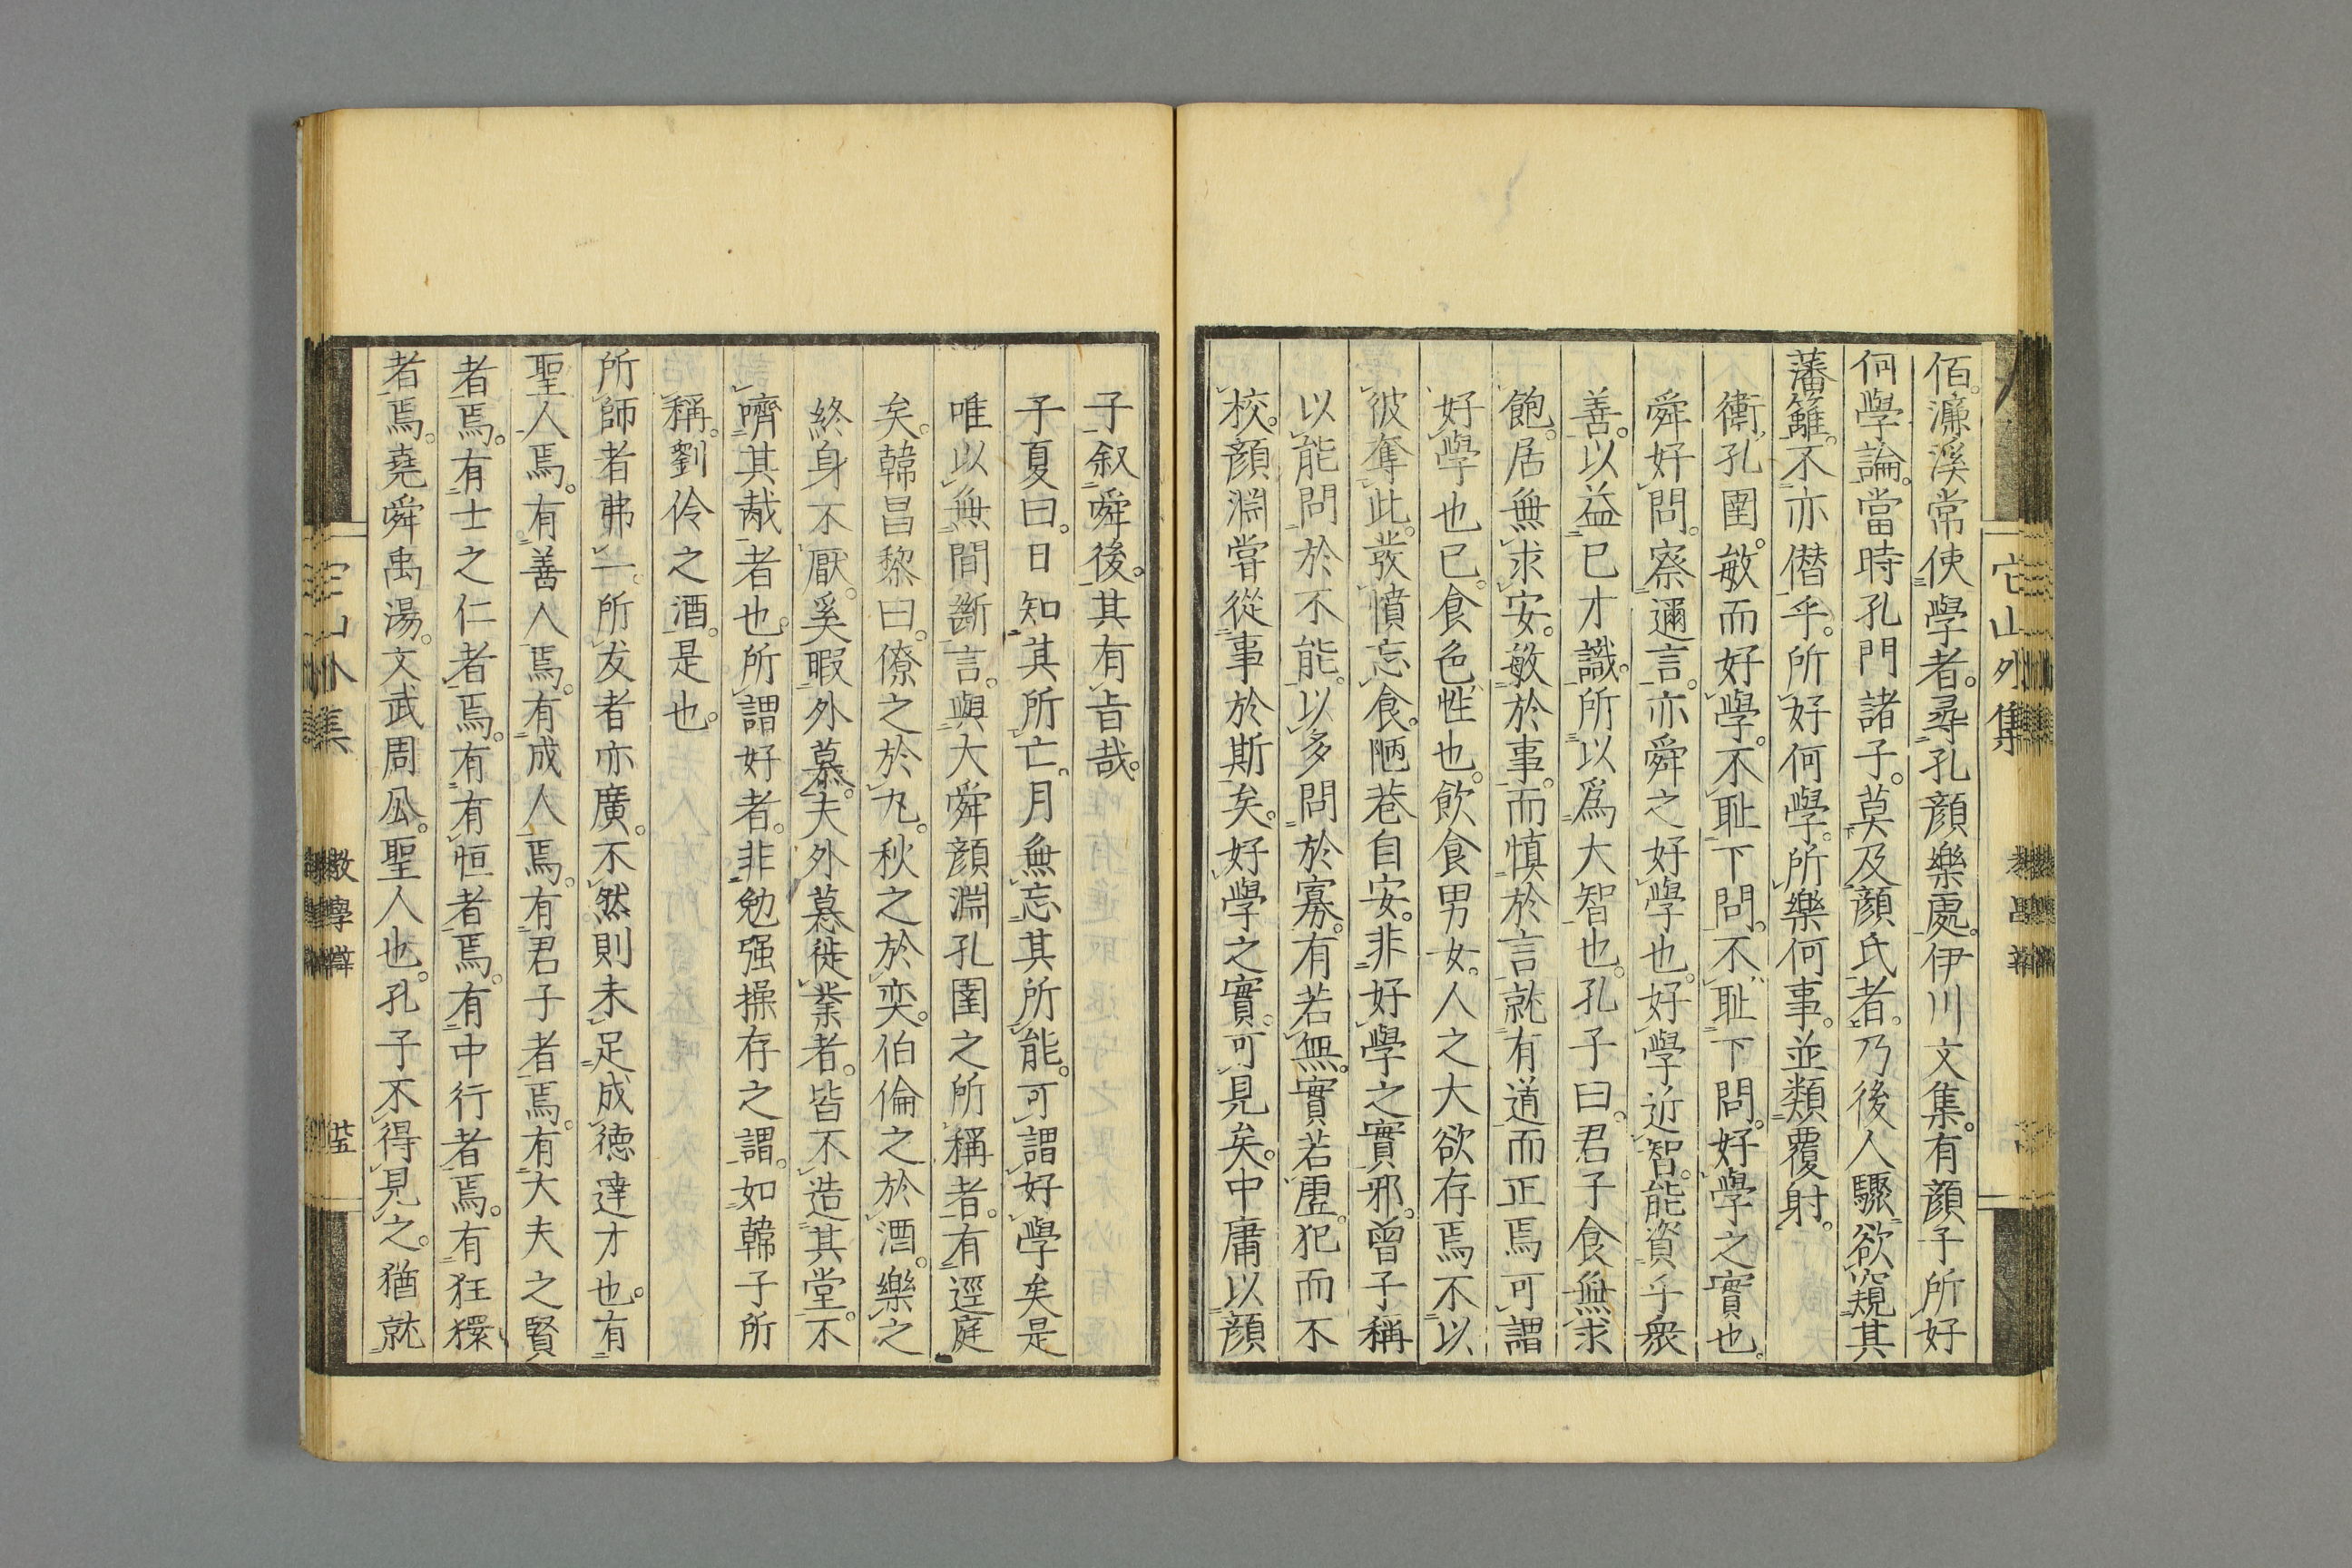 佰。濂溪常使學者。尋孔顔樂處。伊川文集。有顔子所好
何學論。當時孔門諸子。莫及顔氏者。乃後人驟欲窺其
藩籬。不亦僭乎。所好何學。所樂何事。並類覆射。
衛孔圉。敏而好學。不耻下問。不耻下問。好學之實也。
舜好問。察邇言。亦舜之好學也。好學近智。能資乎衆
善。以益已才識。所以爲大智也。孔子曰。君子食無求
飽。居無求安。敏於事。而慎於言就有道而正焉可謂
好學也已。食色性也。飲食男女。人之大欲存焉不以
彼奪此。發憤忘食。陋巷自安。非好學之實邪。曾子稱
以能問於不能。以多問於寡。有若無。實若虚。犯而不
校。顔淵嘗從事於斯矣。好學之實。可見矣。中庸以顔
子叙舜後。其有旨哉。
子夏曰。日知其所亡。月無忘其所能。可謂好學矣是
唯以無間斷言。與大舜顔淵孔圉之所稱者。有逕庭
矣。韓昌黎曰。僚之於丸。秋之於奕。伯倫之於酒。樂之
終身不厭。奚暇外慕。夫外慕徙業者。皆不造其堂。不
嚌其胾者也。所謂好者。非勉强操存之謂。如韓子所
稱。劉伶之酒。是也。
所師者弗一。所友者亦廣。不然則未足成徳達才也。有
聖人焉。有善人焉。有成人焉。有君子者焉。有大夫之賢
者焉。有士之仁者焉。有有恒者焉。有中行者焉。有狂獧
者焉。堯舜禹湯。文武周公。聖人也。孔子不得見之。猶就
它山外集
教學辯